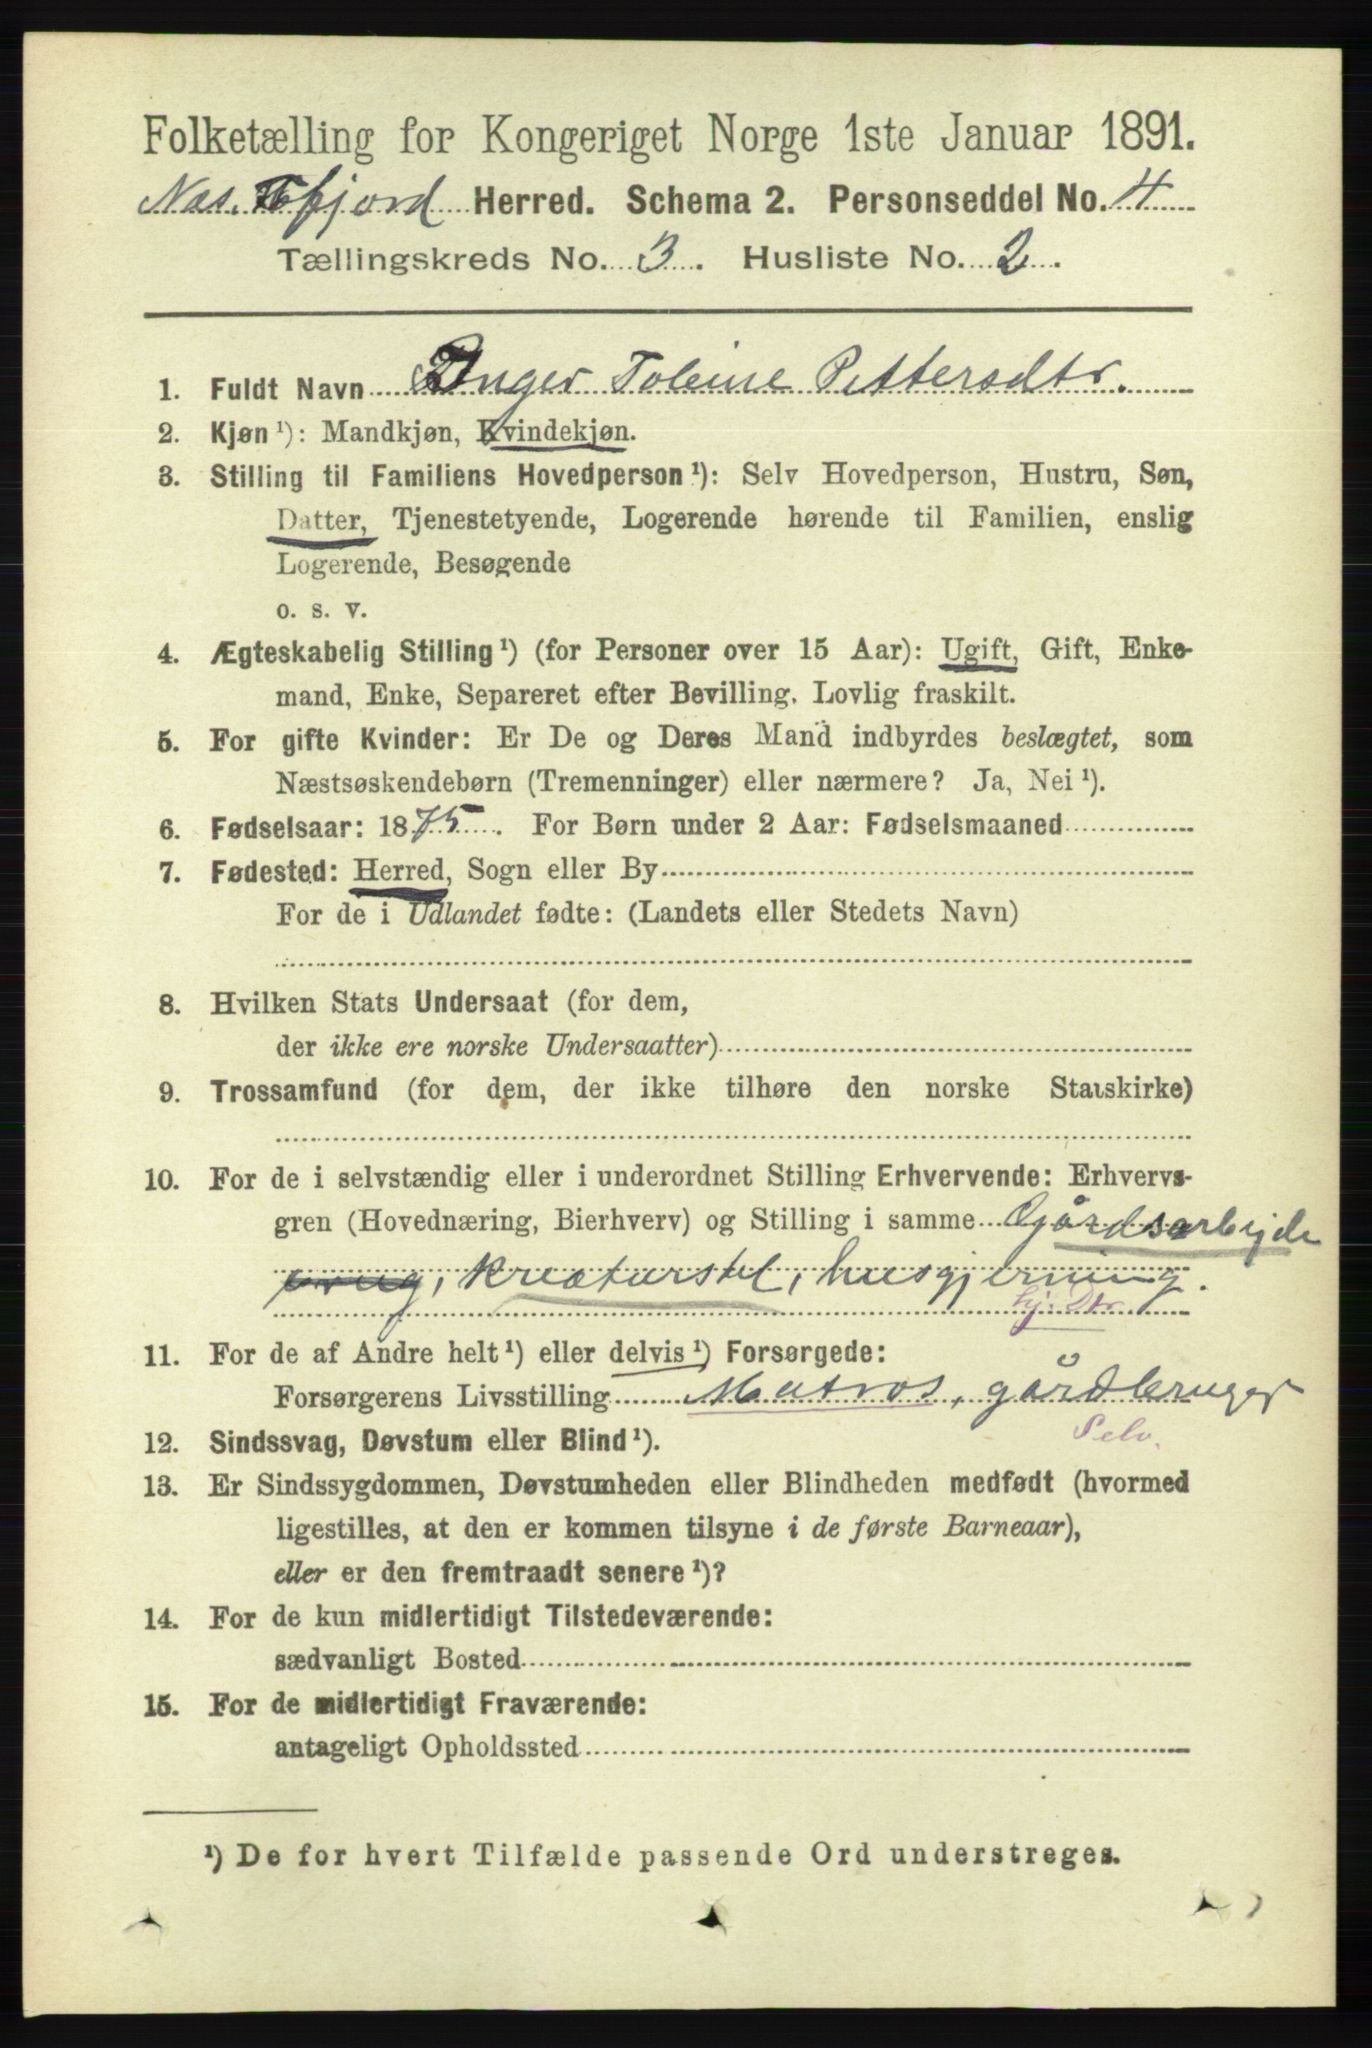 Folketælling for Kongeriget Norge 1ste Januar 1891.
Herred. Schema 2. Personseddel No. 4
Tællingskreds No. 3. Husliste No. 2.
1. Fuldt Navn Inger Toleine Pettersdtr.
2. Kjøn ¹): Mandkjøn, Kvindekjøn.
3. Stilling til Familiens Hovedperson ¹): Selv Hovedperson, Hustru, Søn,
Datter, Tjenestetyende, Logerende hørende til Familien, enslig
Logerende, Besøgende
o. s. v.
4. Ægteskabelig Stilling ¹) (for Personer over 15 Aar): Ugift, Gift, Enke-
mand, Enke, Separeret efter Bevilling. Lovlig fraskilt.
5. For gifte Kvinder: Er De og Deres Mand indbyrdes beslægtet, som
Næstsøskendebørn (Tremenninger) eller nærmere? Ja, Nei ¹).
6. Fødselsaar: 1875. For Børn under 2 Aar: Fødselsmaaned
7. Fødested: Herred, Sogn eller By
For de i Udlandet fødte: (Landets eller Stedets Navn)
8. Hvilken Stats Undersaat (for dem,
der ikke ere norske Undersaatter)
9. Trossamfund (for dem, der ikke tilhøre den norske Statskirke)
10. For de i selvstændig eller i underordnet Stilling Erhvervende: Erhvervs-
gren (Hovednæring, Bierhverv) og Stilling i samme Gårdsarbejde
, kreaturstel, husgjerning.
hj. Dtr.
11. For de af Andre helt ¹) eller delvis ¹) Forsørgede:
Forsørgerens Livsstilling Matros, gårdbruger
Selv.
12. Sindssvag, Døvstum eller Blind ¹).
13. Er Sindssygdommen, Døvstumheden eller Blindheden medfødt (hvormed
ligestilles, at den er kommen tilsyne i de første Barneaar),
eller er den fremtraadt senere ¹)?
14. For de kun midlertidigt Tilstedeværende:
sædvanligt Bosted
15. For de midlertidigt Fraværende:
antageligt Opholdssted
¹) De for hvert Tilfælde passende Ord understreges.